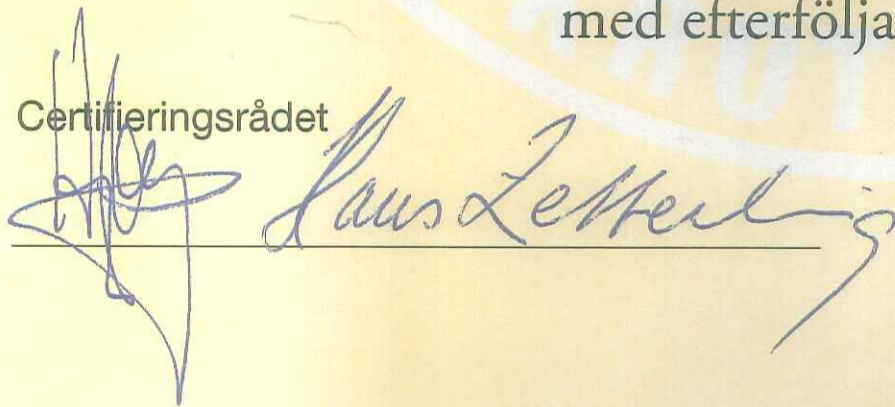 med efterfölja
Certifieringsrådet
Hans Zetterling